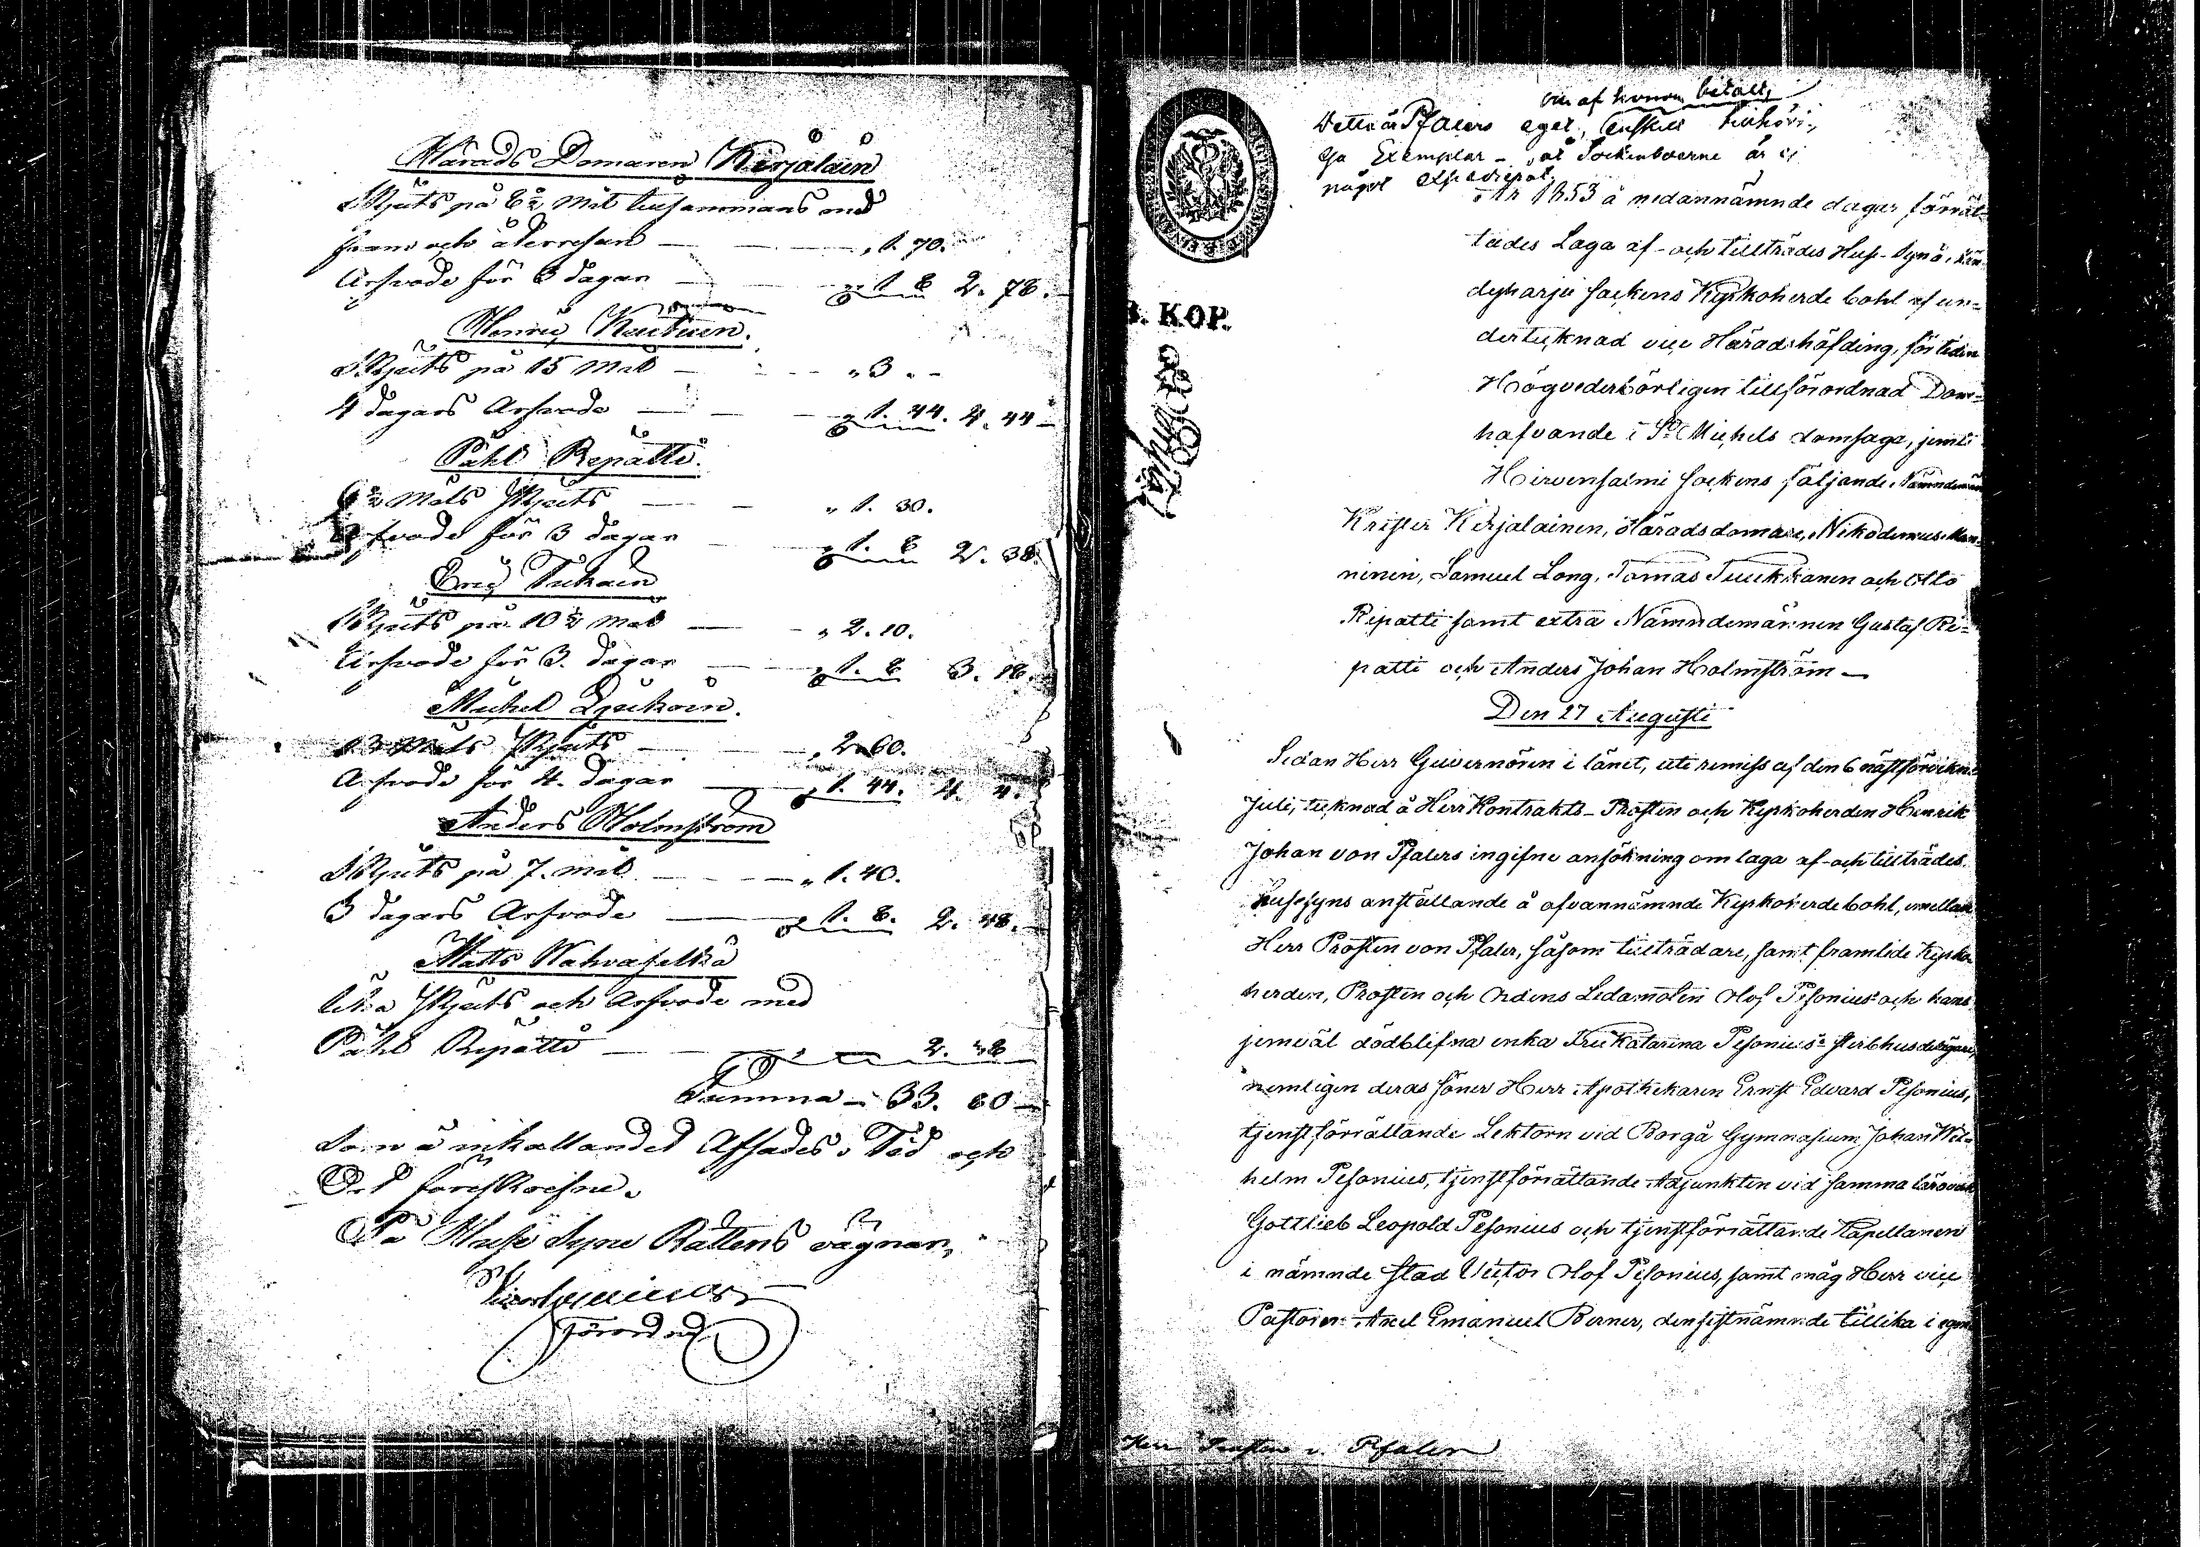 Härads Domaren Kirjalain
Skjuts på 8½ Mil tillsammans med
fram och återresan — — „ 1. 70.
Arfvode för 3 dagar — „ 1. 8 2. 78.
Henric Kautiain.
Skjuts på 15 Mil — — „ 3 „ -
4 dagars Arfvode — — „ 1. 44. 4. 44
Påhl Repatti.
6½ Mils Skjuts — — „ 1. 30.
Arfvode för 3 dagar — „ 1. 8 2. 38.
Eric Tuhain
Skjuts på 10½ Mil — „ 2. 10.
Arfvode för 3. dagar — „ 1. 8 3. 18.
Michel
13 Mils Skjuts — „ 2. 60.
Arfvode för 4. dagar — „ 1. 44. 4. 4.
Anders Holmström
Skjuts på 7. mil — — „ 1. 40.
3 dagars Arfvode — „ 1. 8. 2. 48.
Matts Wahvaselkä
lika Skjuts och Arfvode med
Påhl Repatti — — 2. 38
Summa — 33. 60
Som å inkallandet Afsades, Tid och
Ort föreskrefne.
På Huse Syne Rättens vägnar,
förordnad
B. KOP.
och af honom betalt,
Detta är Pfalers eget, enskilt tillhöri-
ga Exemplar – åt Sockenboerne är ej
något expedierat.
År 1853 å nedannämnde dagar förrät-
tades Laga af- och tillträdes Huse-Syn å Kan-
gasharju sockens Kyrkoherde bohl af un-
dertecknad vice Häradshöfding, för tiden
Högvederbörligen tillförordnad Dom-
hafvande i St Michels domsaga, jemte
Hirvensalmi sockens följande Nämndemän
Krister Kirjalainen, Häradsdomare, Nikodemus Man-
ninen, Samuel Long, Tomas Tuukkanen och Otto
Ripatti samt extra Nämndemännen Gustaf Ri-
patti och Anders Johan Holmström —
Den 27 Augusti
Sedan Herr Guvernören i länet, uti remiss af den 6 nästförvikne
Juli, tecknad å Herr Kontrakts-Prosten och Kyrkoherden Henrik
Johan von Pfalers ingifne ansökning om laga af- och tillträdes
husesyns anställande å ofvannämnde Kyrkoherdebohl, emellan
Herr Prosten von Pfaler, såsom tillträdare, samt framlidne Kyrko-
herden, Prosten och Ordens Ledamoten Olof Pesonius' och hans
jemväl dödblefna enka Fru Katarina Pesonius's sterbhusdelägare,
nemligen deras söner Herr Apothekaren Ernst Edvard Pesonius,
tjenstförrättande Lektorn vid Borgå Gymnasium Johan Wil-
helm Pesonius, tjenstförrättande Adjunkten vid samma läroverk
Gottlieb Leopold Pesonius och tjenstförrättande Kapellanen
i nämnde stad Victor Olof Pesonius, samt måg Herr vice
Pastorn Axel Emanuel Berner, den sistnämnde tillika i egen
Herr Prosten v. Pfaler